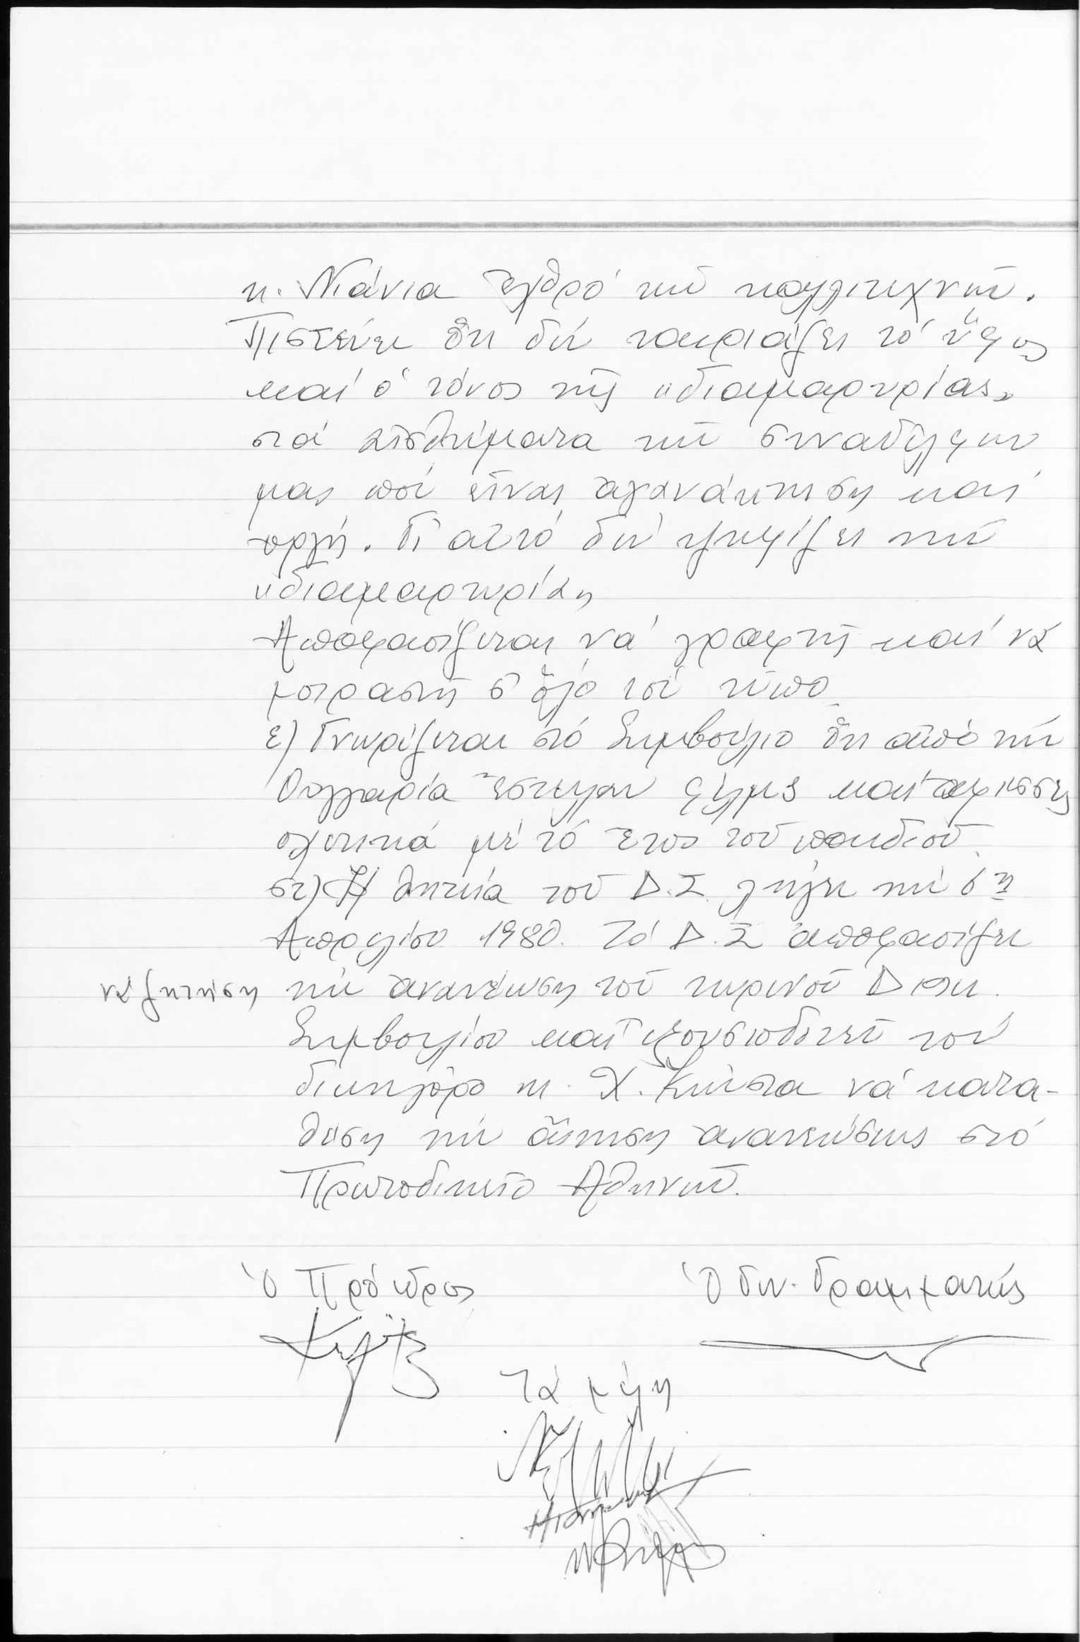 κ. Νιάνια ἐχθρό τῶν καλλιτεχνῶν.
Πιστεύει ὅτι δέν ταιριάζει τό ὕφος
καί ὁ τόνος τῆς "διαμαρτυρίας"
στά αἰσθήματα τῶν συναδέλφων
μας πού εἶναι ἀγανάκτηση καί
ὀργή. Γι αὐτό δέν ψηφίζει τήν
"διαμαρτυρία"
Ἀποφασίζεται νά γραφτῆ καί νά
μοιραστῆ σ' ὅλο τόν τύπο.
ε) Γνωρίζεται στό Συμβούλιο ὅτι ἀπό τήν
Οὑγγαρία ἔστειλαν φίλμς καί ἀφίσσες
σχετικά μέ τό ἔτος τοῦ παιδιοῦ.
στ) Ἡ θητεία τοῦ Δ.Σ λήγει τήν 6η
Ἀπριλίου 1980. Τό Δ.Σ ἀποφασίζει
νά ζητήση τήν ἀνανέωση τοῦ τωρινοῦ Διοικ.
Συμβουλίου καί ἐξουσιοδοτεῖ τόν
δικηγόρο κ. Χ. Κώστα νά κατα-
θέση τήν αἴτηση ἀνανεώσεως στό
Πρωτοδικεῖο Ἀθηνῶν.
Ὁ Πρόεδρος Ὁ Γεν. Γραμματεύς
Τά μέλη